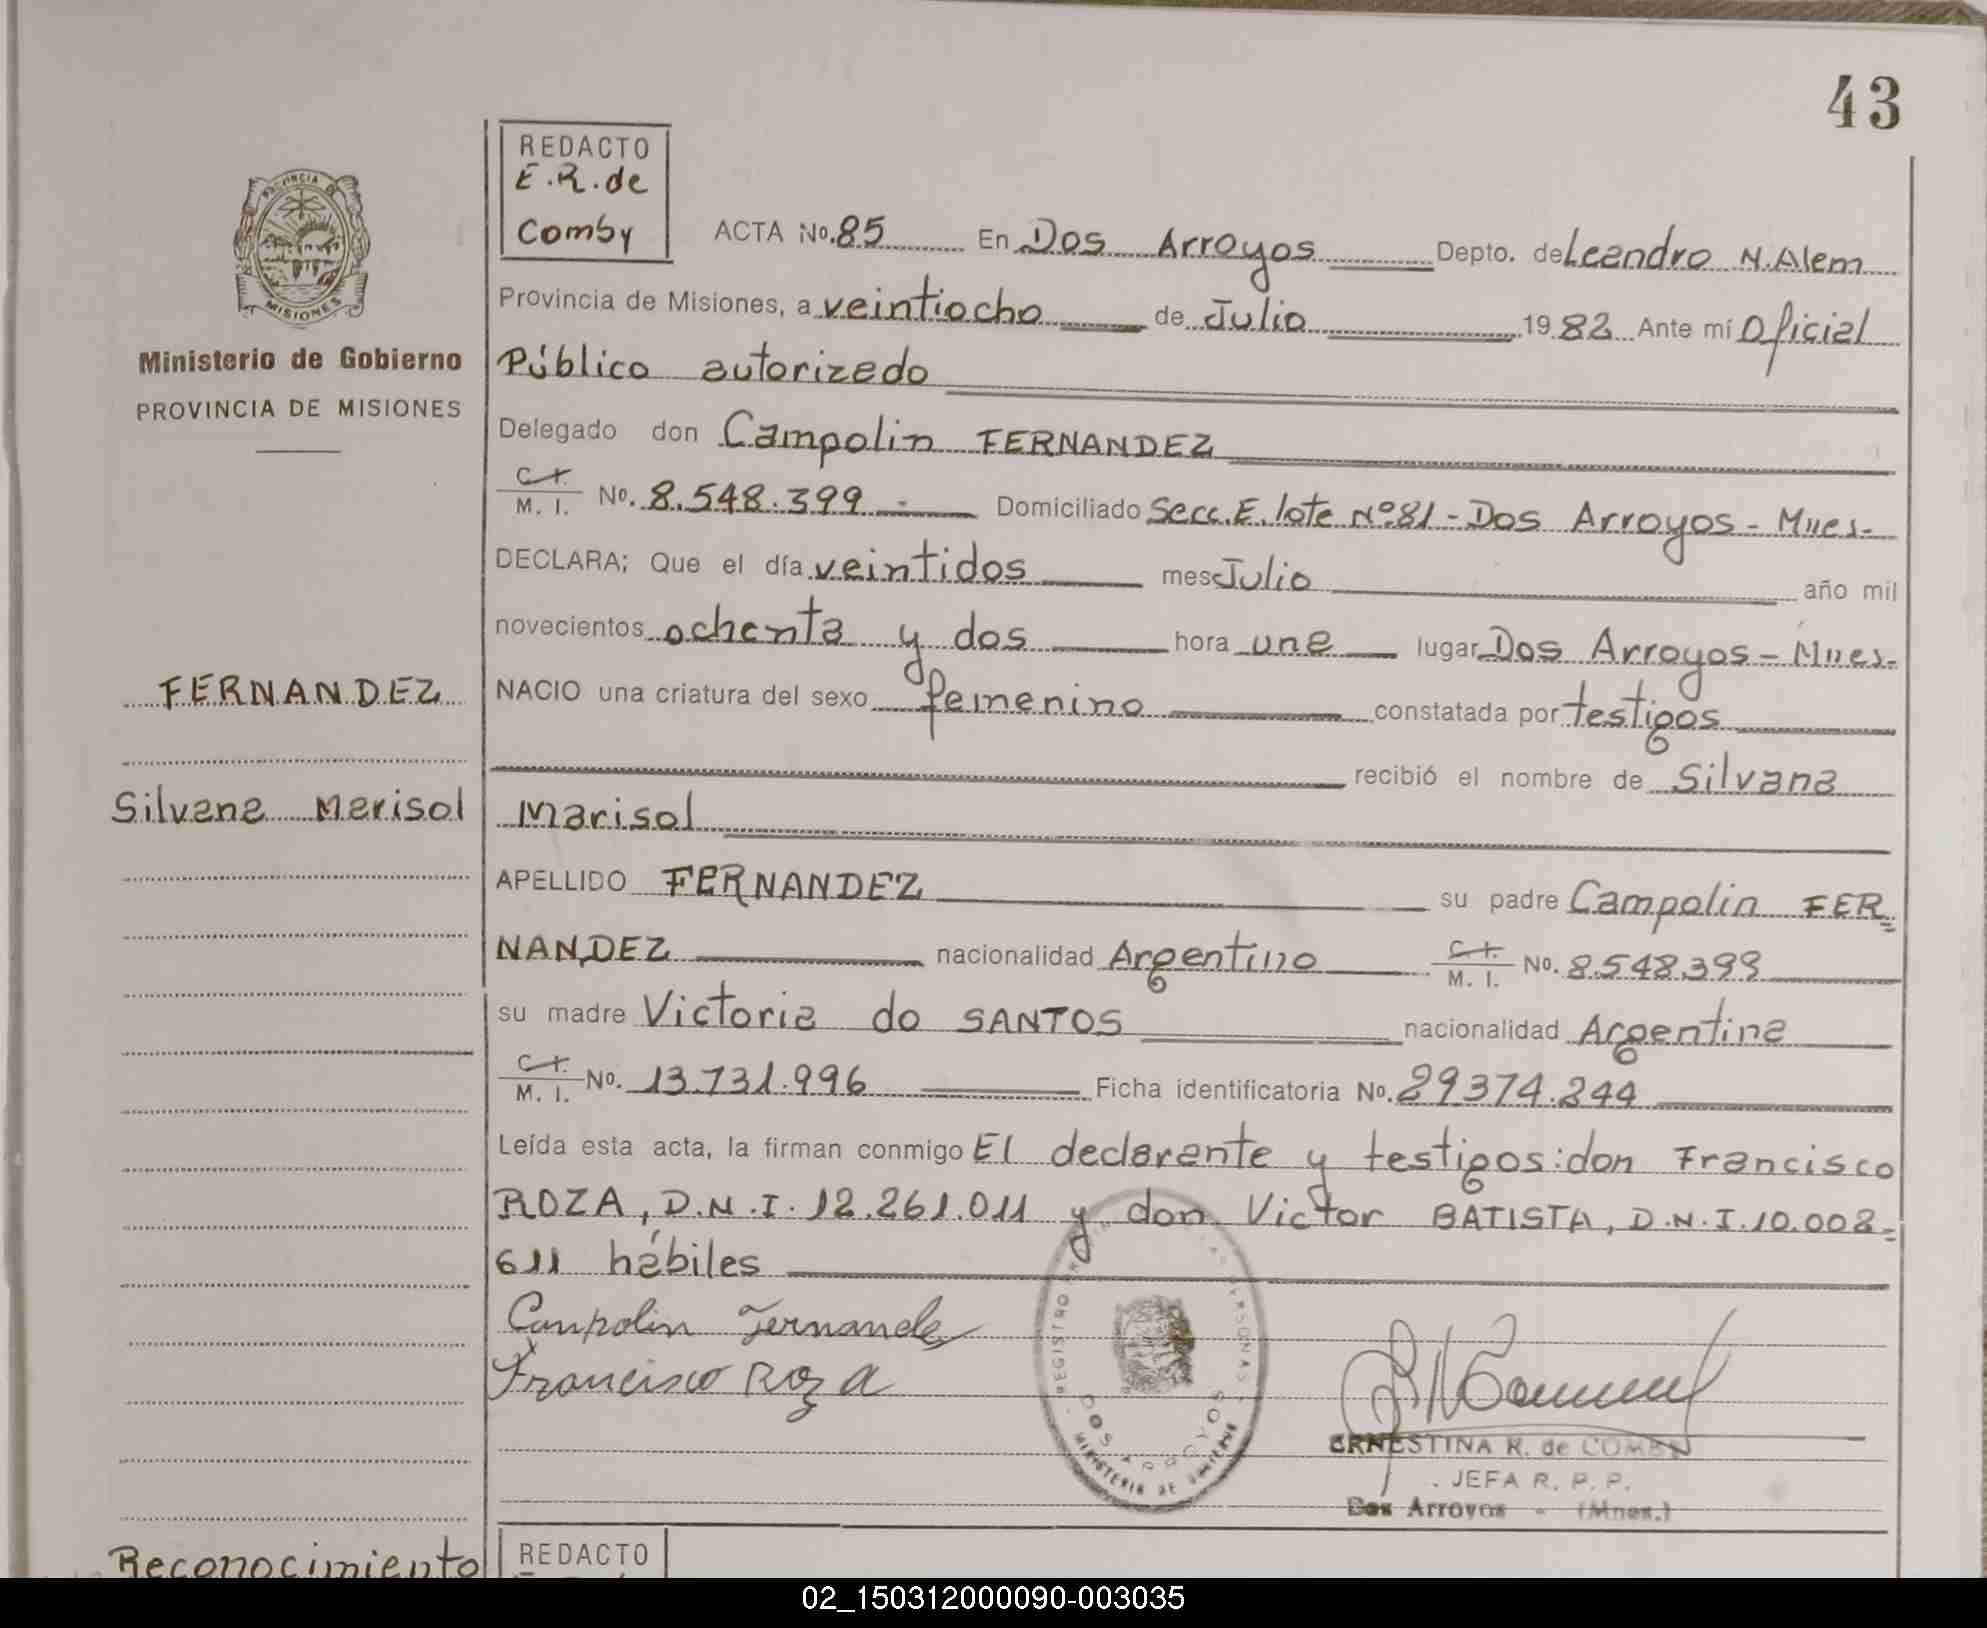 43
PROVINCIA DE
MISIONES
Ministerio de Gobierno
PROVINCIA DE MISIONES
REDACTO
E.R. de
Comby
ACTA No. 85 En Dos Arroyos Depto. de Leandro N. Alem
Provincia de Misiones, a veintiocho de Julio 1982 Ante mí Oficial
Público autorizado
Delegado don Campolin FERNANDEZ
C.I.
M. I. No. 8.548.399.- Domiciliado Secc. E. lote Nº 81 - Dos Arroyos - Mnes.-
DECLARA; Que el día veintidos mes Julio año mil
novecientos ochenta y dos hora una lugar Dos Arroyos - Mnes.-
FERNANDEZ
NACIO una criatura del sexo femenino constatada por testigos
recibió el nombre de Silvana
Silvana Marisol
Marisol
APELLIDO FERNANDEZ su padre Campolin FER=
NANDEZ nacionalidad Argentino C.I.
M. I. No. 8.548.399
su madre Victoria do SANTOS nacionalidad Argentina
C.I.
M. I. No. 13.731.996 Ficha identificatoria No. 29374.244
Leída esta acta, la firman conmigo El declarante y testigos: don Francisco
ROZA, D.N.I. 12.261.011 y don Victor BATISTA, D.N.I. 10.002=
611 hábiles
Campolin Fernandez
Francisco Roza
REGISTRO PERSONAS
DOS ARROYOS
MINISTERIO DE GOBIERNO
ERNESTINA R. de COMBY
JEFA R. P. P.
Dos Arroyos - (Mnes.)
Reconocimiento
REDACTO
02_150312000090-003035